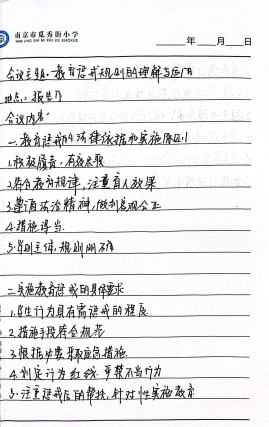 南京市觅秀街小学
NAN JING SHI MI XIU JIE XIAOXUE
年 月 日
会议主题:教育惩戒规则的理解与应用
地点:报告厅
会议内容:
一、教育惩戒的法律依据和实施原则
1.积极履责,有效
2.符合教育规律,注重育人效果
3.遵循法治精神,做到客观公正
4.措施得当
5.惩戒主体,规则明确
二、实施教育惩戒的具体要求
1.学生行为具有需惩戒的程度
2.措施手段符合规范
3.根据必要采取应急措施
4.判定行为红线,严禁不当行为
5.注重惩戒后的帮扶,针对性实施教育